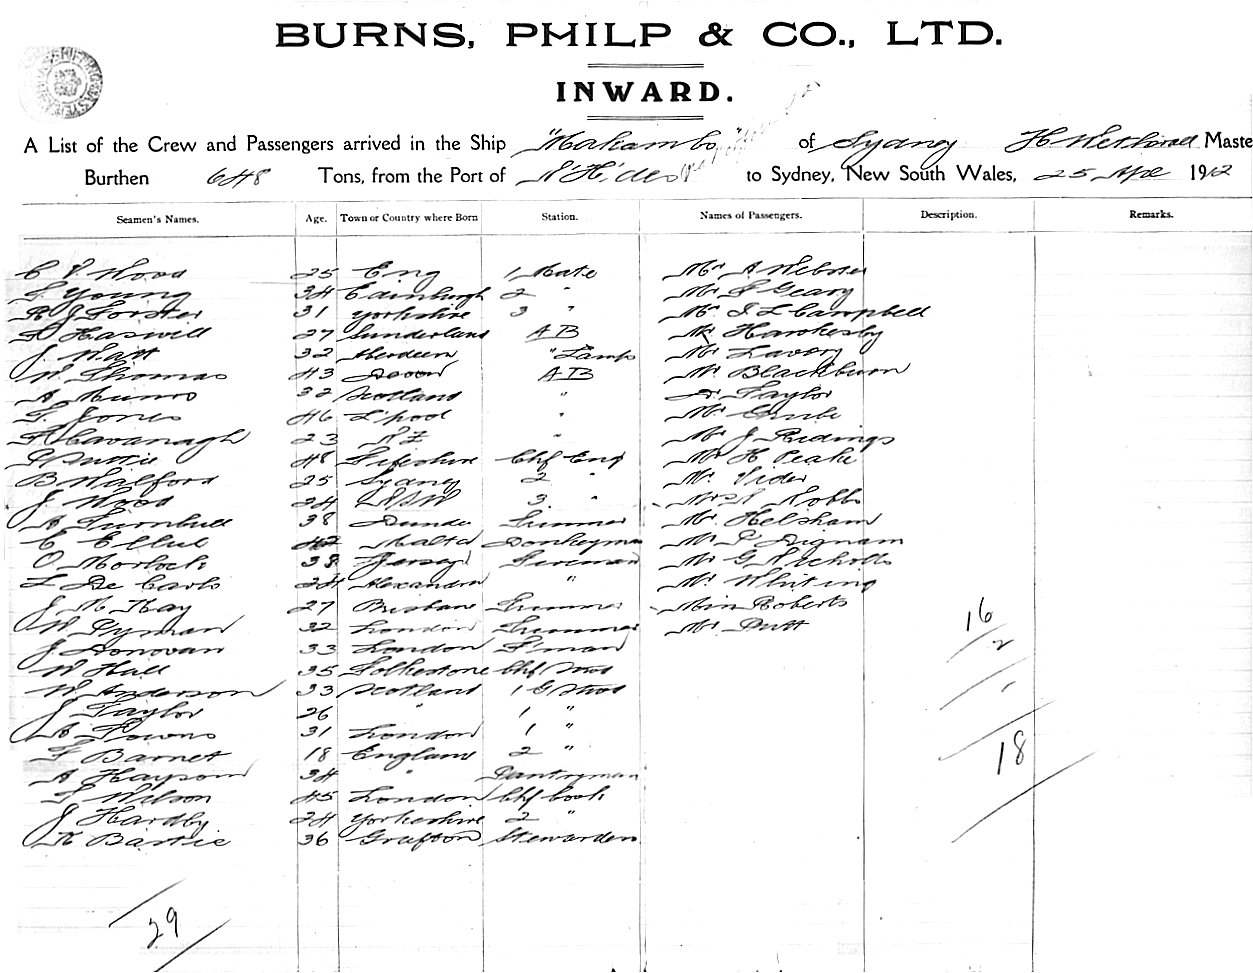 BURNS, PHILP & CO., LTD.
INWARD.
A List of the Crew and Passengers arrived in the Ship "Makambo" of Sydney H Wetherall Maste
Burthen 648 Tons, from the Port of N Hides to Sydney, New South Wales, 25 Apl 1912
Seamen's Names. Age. Town or Country where Born Station. Names of Passengers. Description. Remarks.
C V Wood 25 Eng 1 Mate Mr A Webster
Young 34 Edinburgh 2 " Mr Geary
R J Forster 31 Yorkshire 3 " Mr Campbell
Haswell 27 Sunderland AB Mr Hawkesby
J. Watt 32 Aberdeen " Lamps Mr Lavery
W Thomas 43 Devon AB Mr Blackburn
A Munro 32 Scotland " Dr Taylor
T. Jones 46 L'pool " Mr
Cavanagh 23 N Z " Mr J Ridings
48 Fifeshire Chf Eng Mr H Peake
B Walford 25 Sydney 2 " Mr Vider
J Wood 24 NSW 3 " Mrs Hobbs
A Turnbull 38 Dundee Mr Helsham
C Ellul 42 Malta Donkeyman Mr Dignam
O Morlock 38 Jersey Fireman Mr G Nicholls
L De Carlo 24 Alexandria " Mr Whiting
J M Hay 27 Brisbane Trimmer Miss Roberts 16
W Pyman 32 London Trimmer Mr Dutt 2
J Donovan 33 London F'man
W Hall 35 Folkestone Chf Stwd
W Anderson 33 Scotland 1 G Stwd
J Taylor 26 " 1 "
A Towns 31 London 1 "
F Barnet 18 England 2 " 18
A Haysom 34 " Pantryman
T Wilson 45 London Chf Cook
J Hardby 24 Yorkeshire 2 "
K Bastie 36 Grafton Stewardess
29